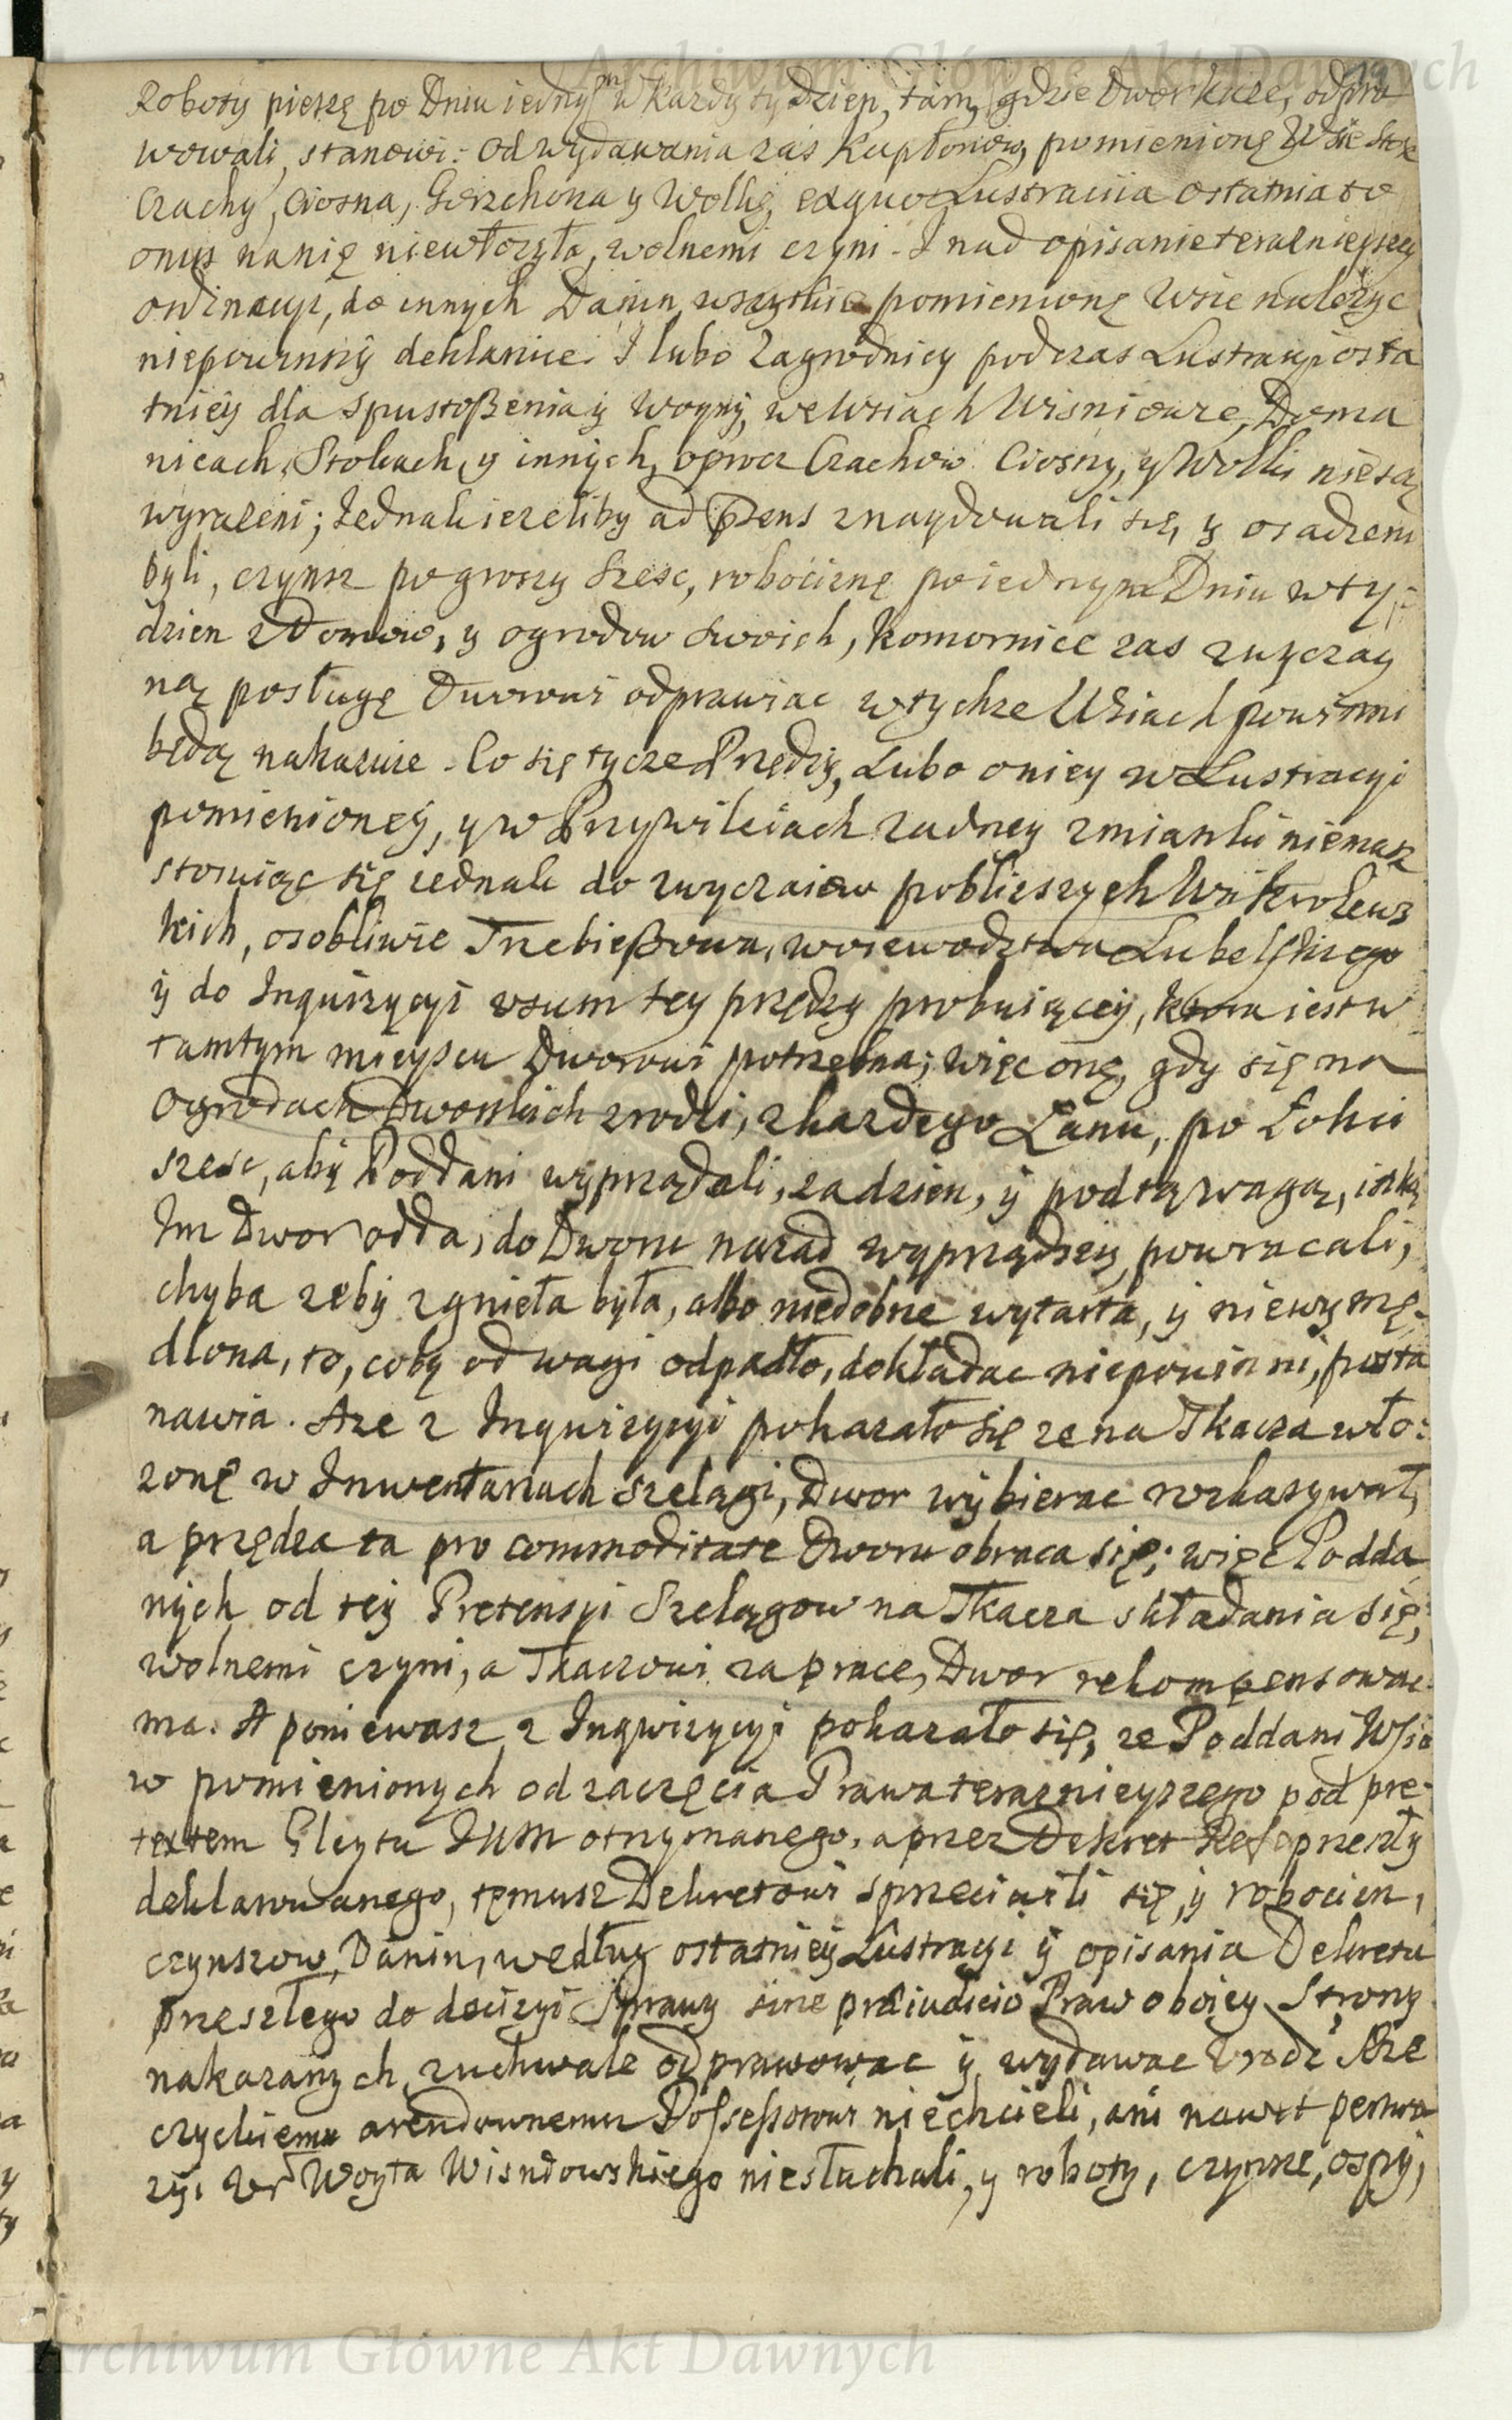 Roboty pieszę po Dniu iednym w kazdy tydzien, tam, gdzie Dwor kaze, odpra
wowali, stanowi: od wydawania zas Kapłonow, pomienionę Wsie Stok
Czachy, Ciosna, Gorzchona y Wolkę, ex quo Lustracya ostatnia to
onus nanię niewłozyła, wolnemi czyni. I nad opisanie teraznieyszey
ordinacyi, do innych Danin wszytkie pomienionę Wsie nalezyc
niepowinny deklaruie. I lubo Zagrodnicy podczas Lustracyi osta
tnieÿ dla spustoszenia ÿ Woynÿ, we Wsiach Wisniowie, Doma
nicach, Stokach, y innÿch, oprocz Czachow Ciosny, y Wolki niesą
wyrazeni; Jednak iezeliby ad Præsens znaydowali się, y osadzeni
byli, czynsz po groszy szesc, robociznę po iednym Dniu w ty:
dzien z Domow, y ogrodow swoich, komornice zas zwyczay
ną posługę Dworowi odprawiac w tychze Wsiach powinni
będą nakazuie. Co się tycze Przędzy, Lubo oniey w Lustracyi
pomienioneÿ, y w Przywileiach zadney zmianki niemasz
stosuiąc się iednak do zwyczaiow pobliszych Wsi krolews
kich, osobliwie Trzebieszowa, woiewodztwa Lubelskiego
ÿ do Inquizycyi usum tey przędzy probuiąceÿ, ktora iest w
tamtym mieyscu Dworowi potrzebna; więc onę, gdy się na
Ogrodach Dworskich zrodzi, z kazdego Łanu, po Łokci
szesc, abÿ Poddani wyprządali, zadzien, ÿ pod tą wagą, iaką
Im Dwor odda, do Dworu nazad wyprządszy powracali,
chyba zebÿ zgnieła była, albo niedobrze wytarta, ÿ niewymę-
dlona, to, cobÿ od wagi odpadło, dokładac niepowinni, posta
nawia. Aze z Inquizycyi pokazało się ze na Tkacza wło:
zonę w Inwentarzach szelągi, Dwor wÿbierac rozkazywał,
a przędza ta pro commoditate Dworu obraca się; więc Podda
nÿch od teÿ Pretensyi Szelągow na Tkacza składania się,
wolnemi czyni, a Tkaczowi za prace, Dwor rekompensowac
ma. A poniewasz z Inqwizycyi pokazało się, ze Poddani Wsio
w pomienionych od zaczęcia Prawa teraznieyszego pod pre-
textem Gleytu JKM otrzymanego, a przez Dekret Refo przeszły
deklarowanego, temusz Dekretowi sprzeciwili się, ÿ robocizn,
czynszow, Danin, według ostatnieÿ Lustracyi ÿ opisania Dekretu
przeszłego do decizyi Sprawy sine præiudicio Praw oboiey Strony
nakazanych, zuchwale odprawowac ÿ wydawac Urodz Rze
czyckiemu arendownemu Possessorowi niechcieli, ani nawet perswa
zyi Ur Woyta Wisniowskiego niesłuchali, y roboty, czynsze, ospÿ,